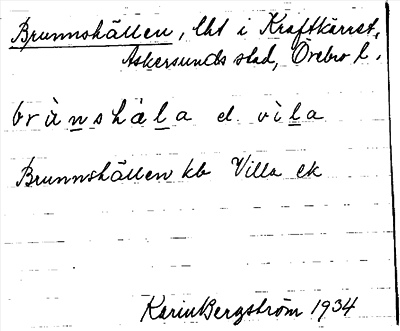 Brunnshällen, lht i Kraftkärret,
Askersunds stad, Örebro l.
brùnshäla el. vìla
Brunnshällen kb Villa ek
Karin Bergström 1934